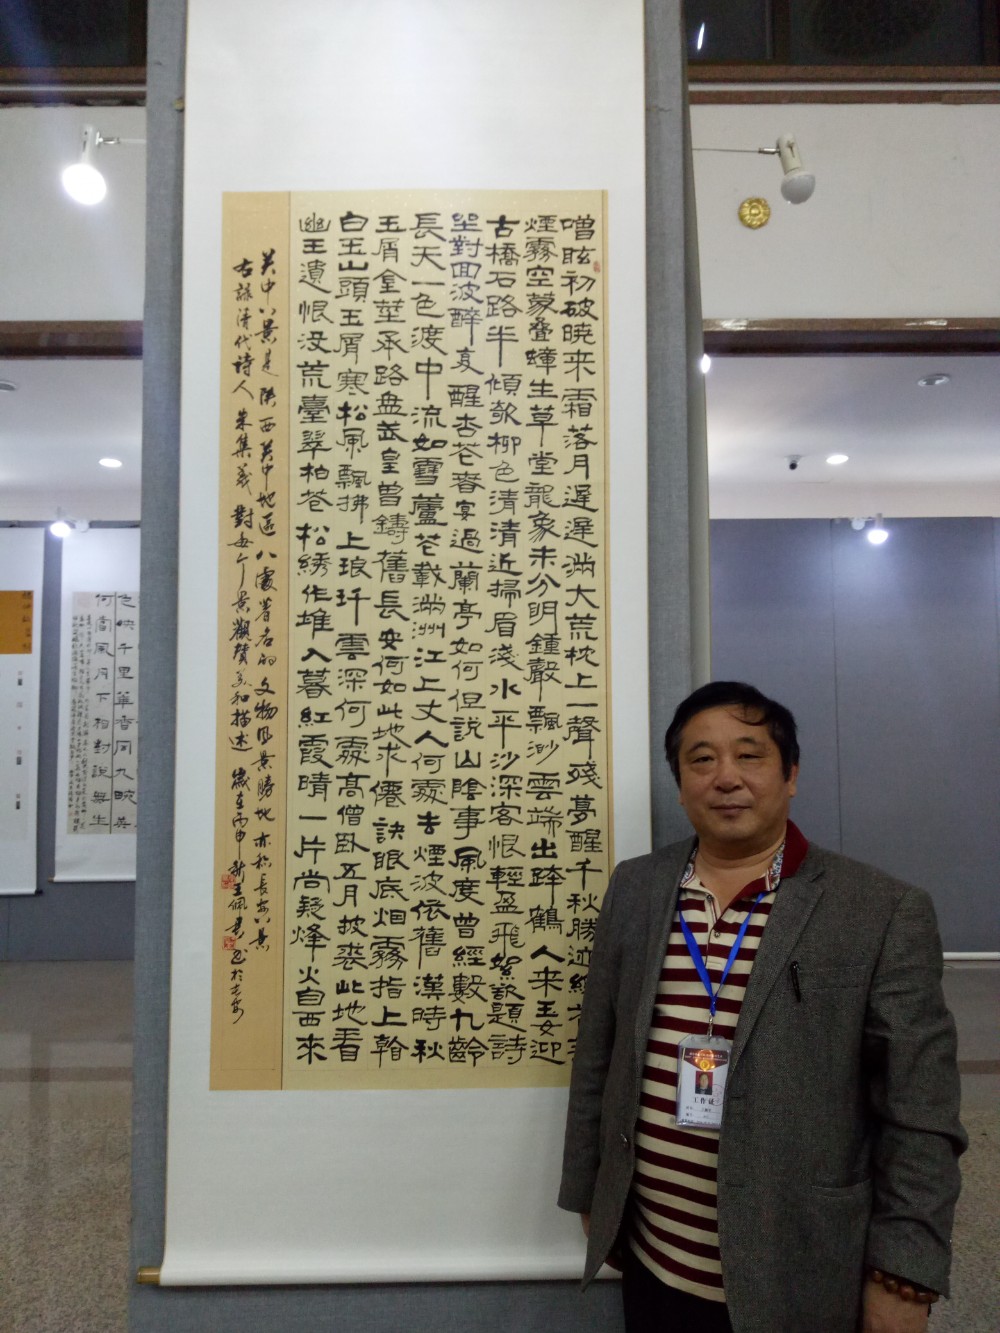 噌眩初破曉来霜落月遲遲淌大荒枕上一聲殘夢醒千秋勝迹總
煙霧空蒙叠嶂生草堂龍象未分明鍾聲飄渺雲端出跨鶴人来玉女迎
古橋石路半傾欹柳色清清近掃眉淺水平沙深客恨輕盈飛絮欲題詩
坐對回波醉复醒杏花春宴過蘭亭如何但說山陰事風度曾經數九齡
長天一色渡中流如雪蘆花載淌洲江上丈人何處去煙波依舊漢時秋
玉屑金莖承路盘武皇曾鑄舊長安何如此地求僊訣眼底烟霧指上翰
白玉山頭玉屑寒松風飄拂上琅玕雲深何處高僧卧五月披裘此地看
幽王遺恨没荒臺翠柏苍松綉作堆入暮紅霞晴一片尚疑烽火自西来
关中八景是陕西关中地區八處著名的文物風景勝地亦称長安八景
右錄清代詩人朱集義對每个景觀贊美和描述 歲在丙申 王佩 书於长安
工作证
色映千里華香同九畹英
何當風月下相對說無生